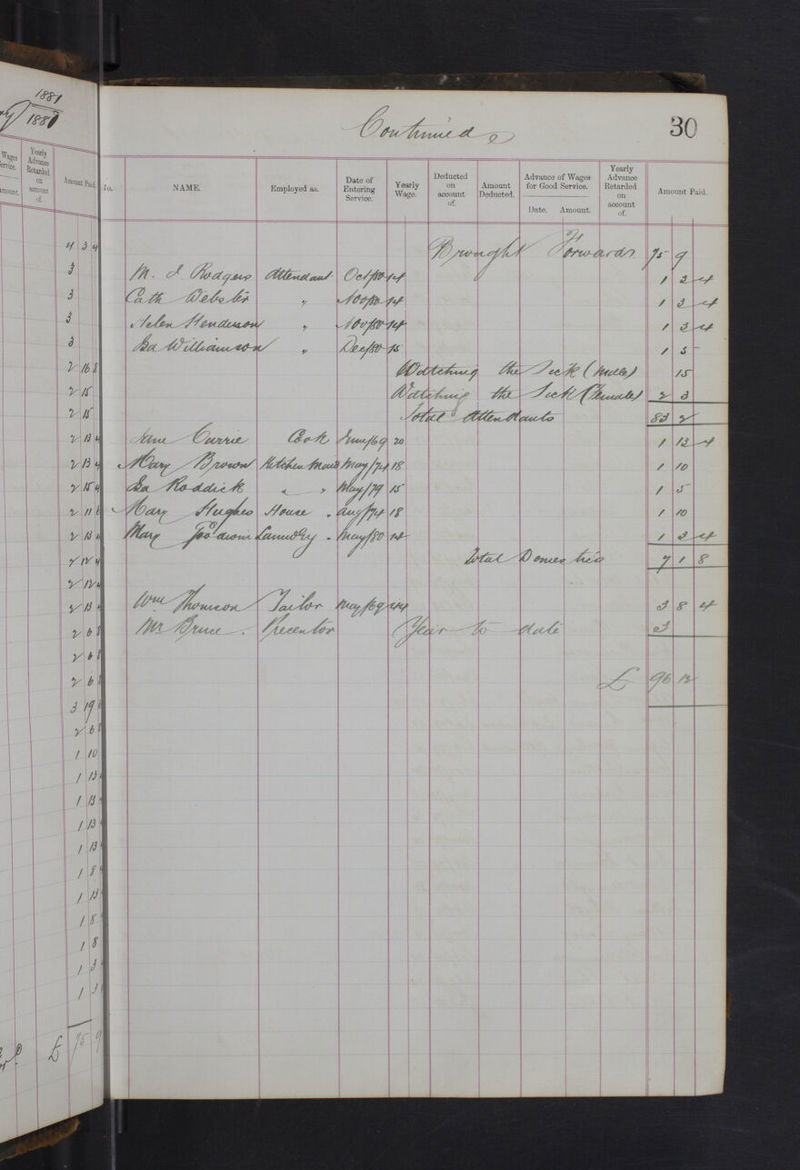 1881
1880
Wages
Service.
Amount.
Yearly
Advance
Retarded
on
account
of.
Amount Paid.
4 3 4
3
3
3
3
2 16 8
2 15
2 15
2 13 4
2 13 4
2 15 4
2 11 8
2 13 4
2 12 4
2 12 4
2 13 4
2 6 8
2 6 8
2 6 8
3 19
2 6 8
1 10
1 13
1 13
1 13
1 13
1 8
1 13
1 8
1 8
1 3
1 3
£ 75 9
Continued
30
No.
NAME.
Employed as.
Date of
Entering
Service.
Yearly
Wage.
Deducted
on
account
of.
Amount
Deducted.
Advance of Wages
for Good Service.
Date. Amount.
Yearly
Advance
Retarded
on
account
of.
Amount Paid.
Brought Forward 75 9
M. J Rodgers Attendant Oct/80 14 1 3 4
Cath Webster " Nov/80 14 1 3 4
Helen Henderson " Nov/80 14 1 3 4
Isa Williamson " Dec/80 15 1 5
Watching the Sick (Males) 15
Watching the Sick (Females) 2 3
Total Attendants 83 2
Jane Currie Cook June/69 20 1 13 4
Mary Brown Kitchen Maid May/74 18 1 10
Isa Roddick " " May/79 15 1 5
Mary Hughes House " Aug/74 18 1 10
Mary Laundry " May/80 14 1 3 4
Total Domestics 7 1 8
Wm Thomson Tailor May/69 3 8 4
Mr Bruce. Precentor Year to date 3
£ 96 12